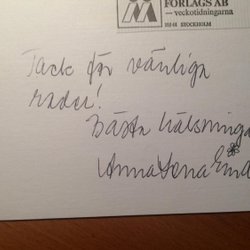 FÖRLAGS AB
—veckotidningarna
STOCKHOLM
Tack för vänliga
rader!
Bästa hälsninga